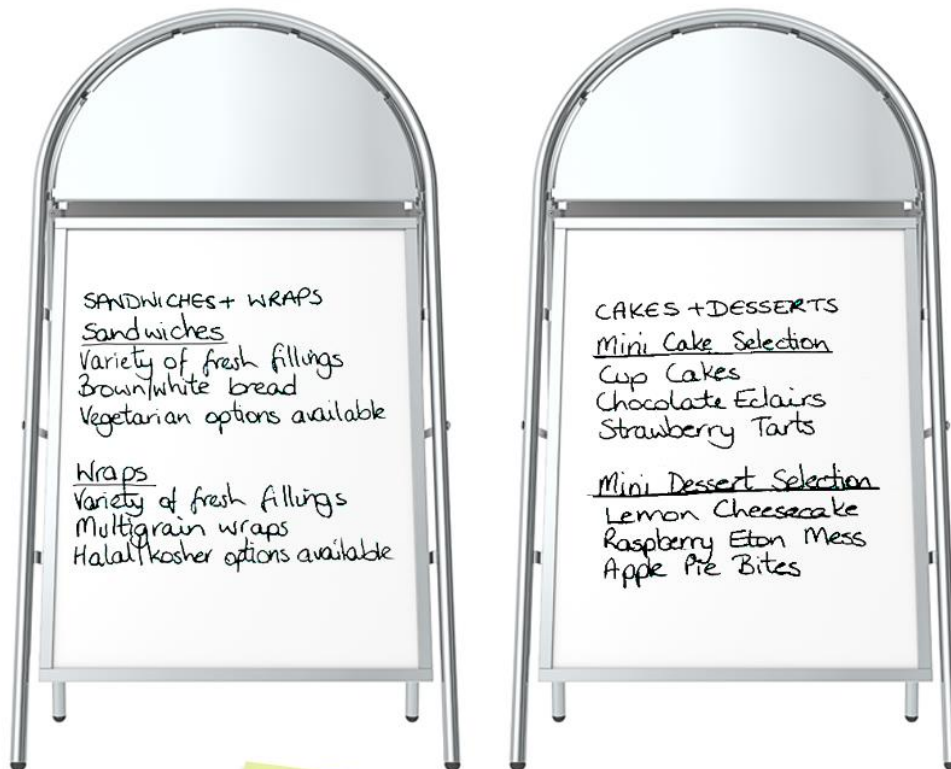 SANDWICHES + WRAPS
Sandwiches
Variety of fresh fillings
Brown/white bread
Vegetarian options available
Wraps
Variety of fresh fillings
Multigrain wraps
Halal/kosher options available
CAKES + DESSERTS
Mini Cake Selection
Cup Cakes
Chocolate Eclairs
Strawberry Tarts
Mini Dessert Selection
Lemon Cheesecake
Raspberry Eton Mess
Apple Pie Bites